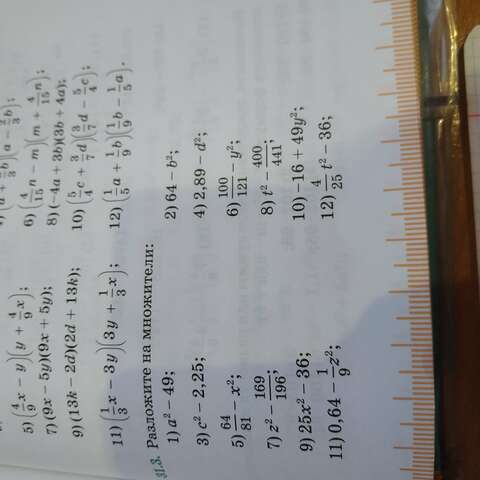 (a + 2/3 b)(a − 2/3 b);
5) (4/9 x − y)(y + 4/9 x); 6) (4/15 n − m)(m + 4/15 n);
7) (9x − 5y)(9x + 5y); 8) (−4a + 3b)(3b + 4a);
9) (13k − 2d)(2d + 13k); 10) (5/4 c + 3/7 d)(3/7 d − 5/4 c);
11) (1/3 x − 3y)(3y + 1/3 x); 12) (1/5 a + 1/9 b)(1/9 b − 1/5 a).
31.3. Разложите на множители:
1) a² − 49; 2) 64 − b²;
3) c² − 2,25; 4) 2,89 − d²;
5) 64/81 − x²; 6) 100/121 − y²;
7) z² − 169/196; 8) t² − 400/441;
9) 25x² − 36; 10) −16 + 49y²;
11) 0,64 − 1/9 z²; 12) 4/25 t² − 36;